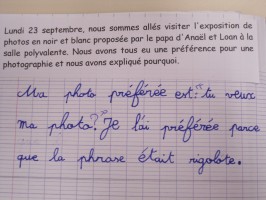 Lundi 23 septembre, nous sommes allés visiter l'exposition de
photos en noir et blanc proposée par le papa d'Anaël et Loan à la
salle polyvalente. Nous avons tous eu une préférence pour une
photographie et nous avons expliqué pourquoi.
Ma photo préférée est: "tu veux
ma photo?" Je l'ai préférée parce
que la phrase était rigolote.